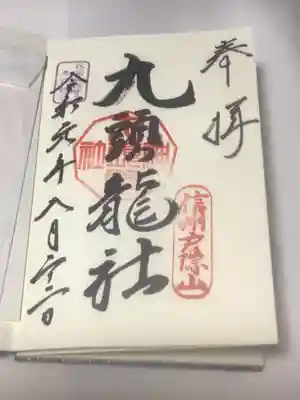 奉拝
信州戸隠山
九頭龍社
令和元年八月